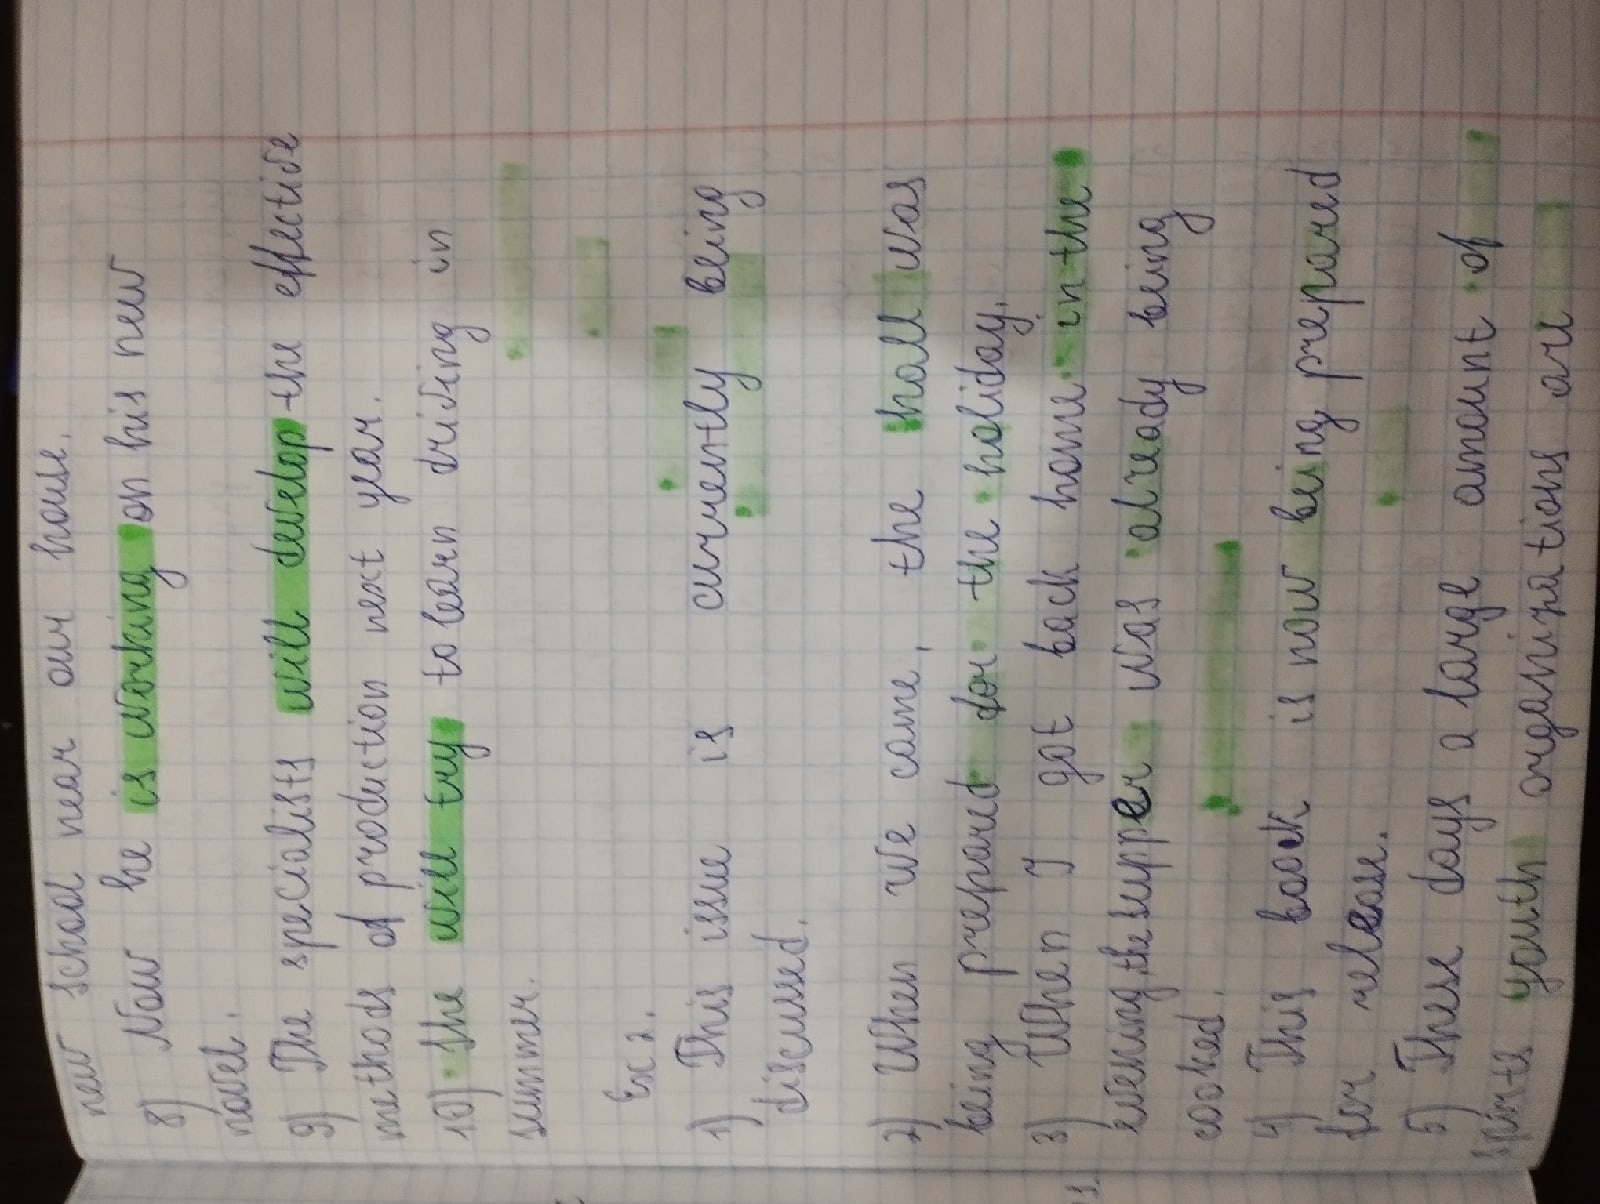 new school near our house.
8) Now he is working on his new
novel.
9) The specialists will develop the effective
methods of production next year.
10) She will try to learn driving in
summer.
Ex 2.
1) This issue is currently being
discussed.
2) When we came, the hall was
being prepared for the holiday.
3) When I got back home in the
evening, the supper was already being
cooked.
4) This book is now being prepared
for release.
5) These days a large amount of
sports youth organizations are